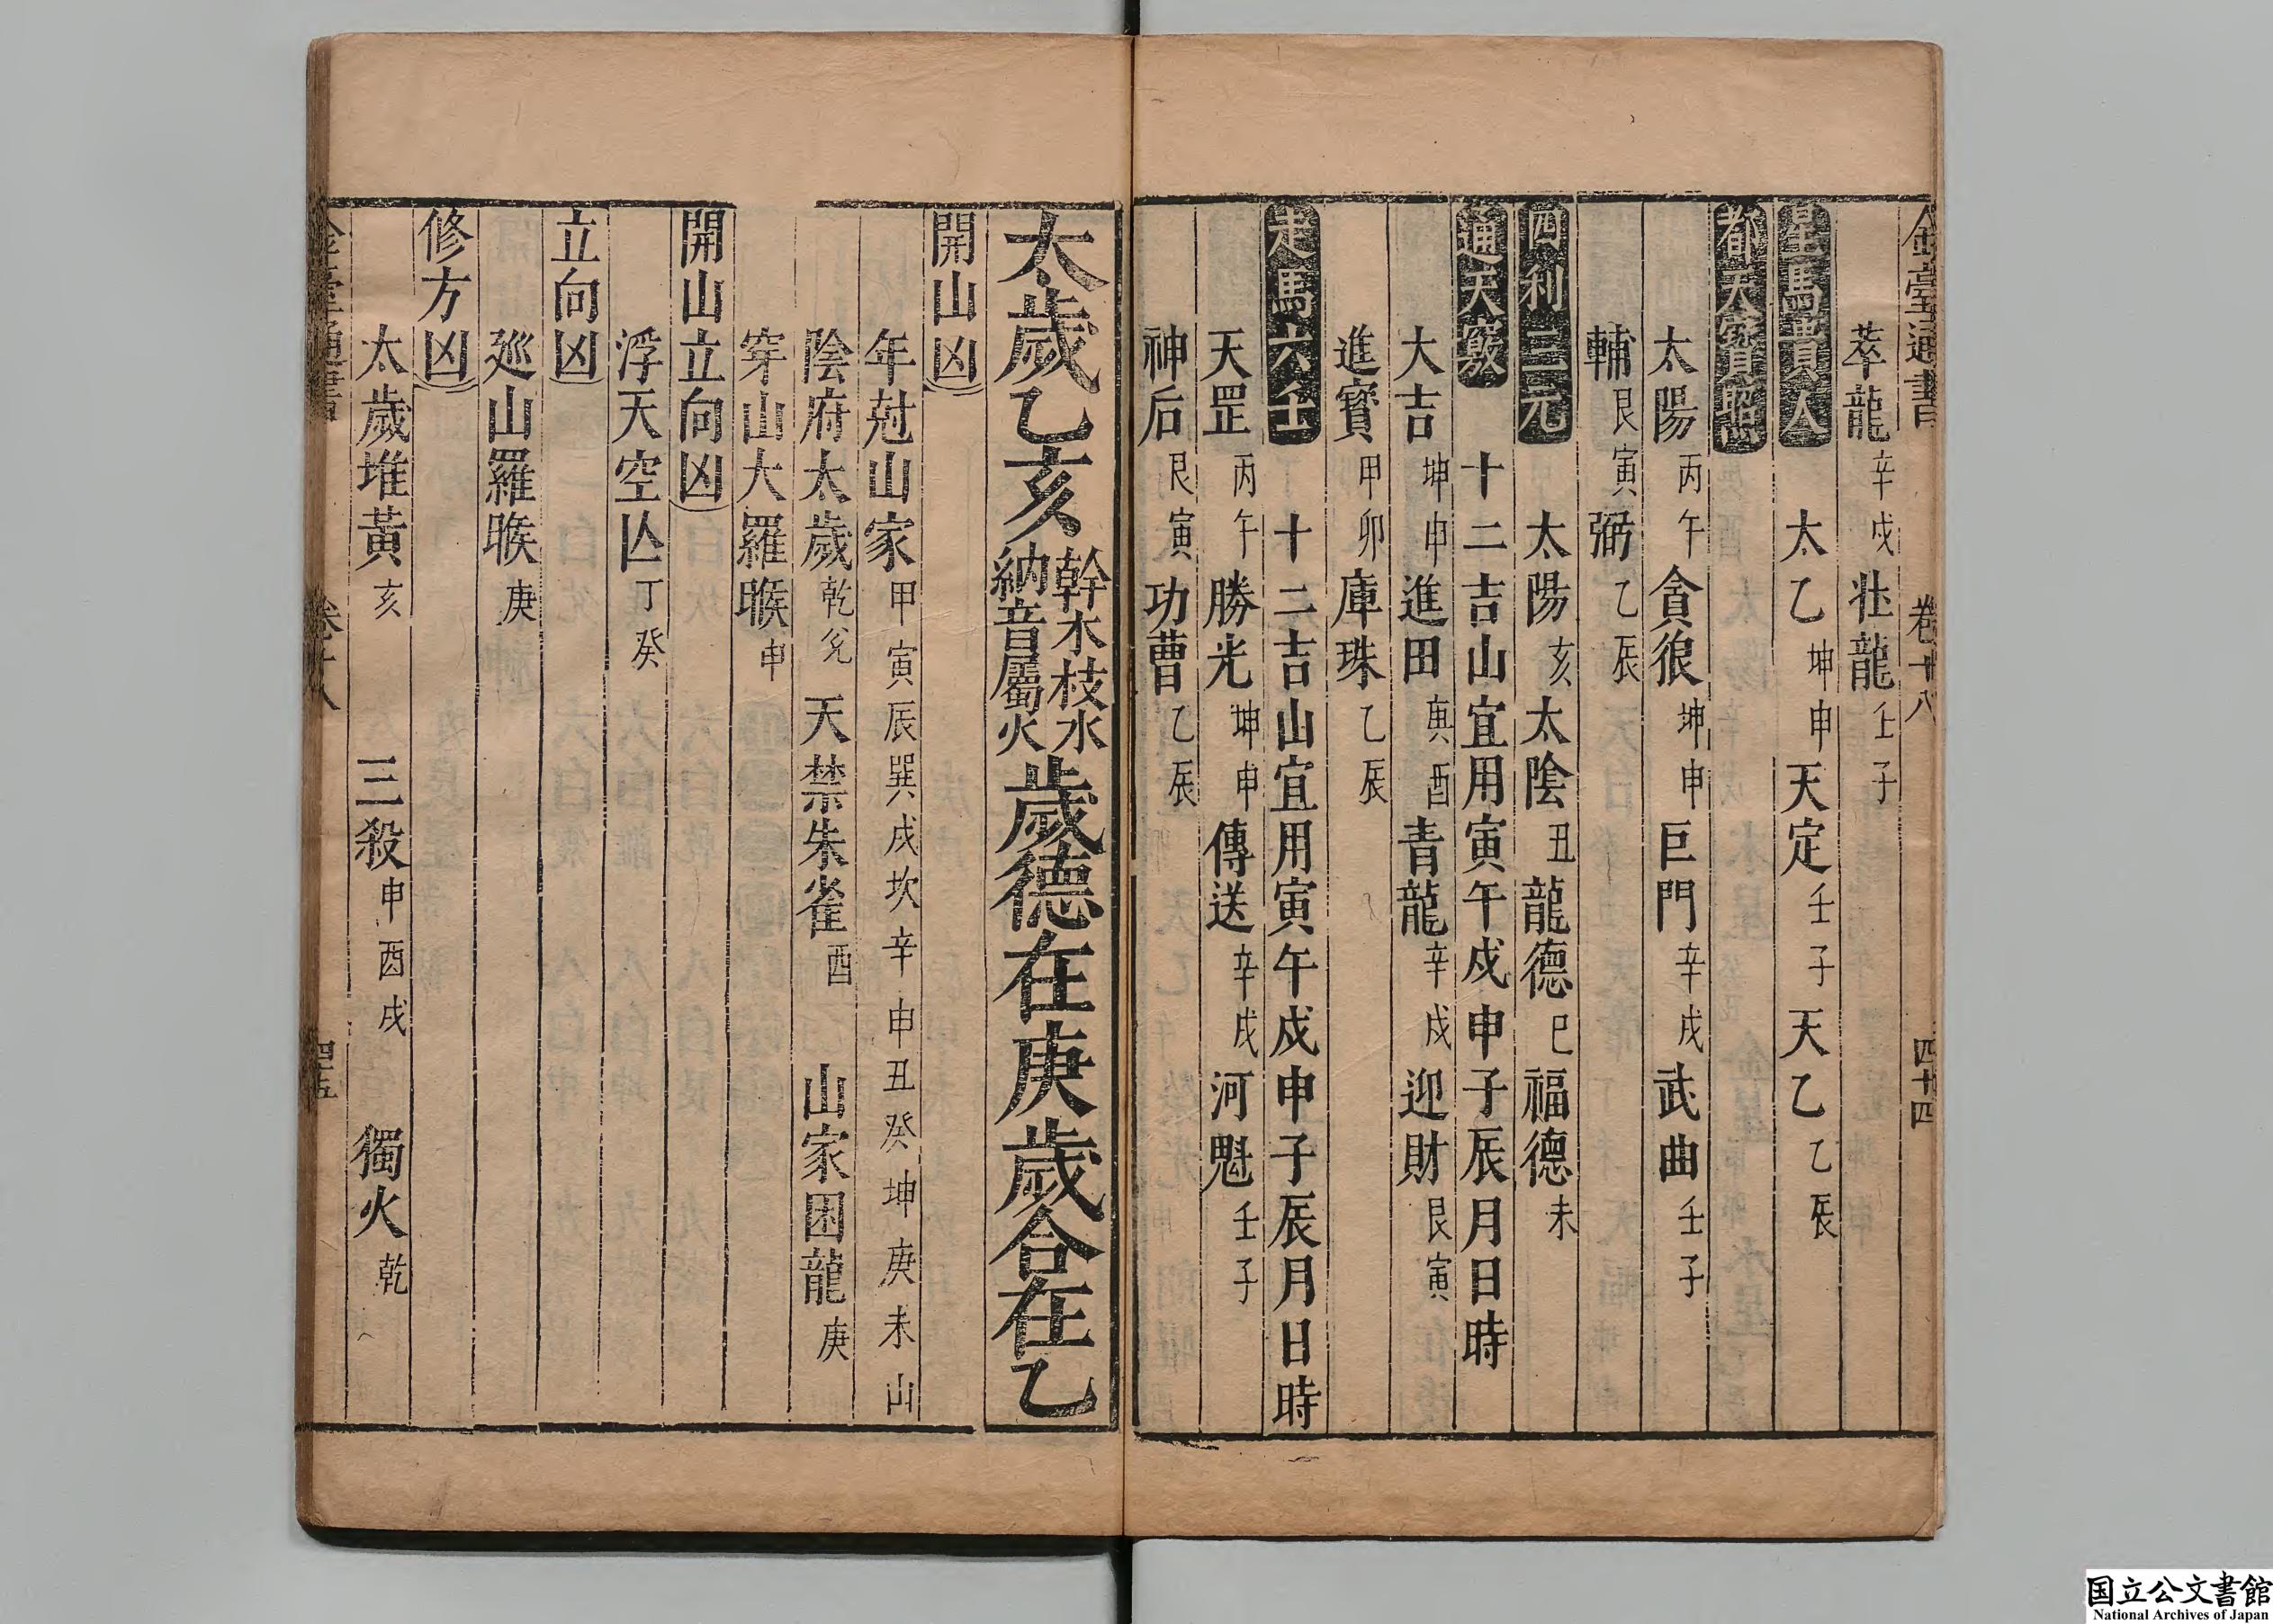 金臺通書 卷十八 四十四
萃龍辛戌壮龍壬子
星馬貴人 太乙坤申天定壬子天乙乙辰
都天寳照
太陽丙午貪狼坤申巨門辛戌武曲壬子
輔艮寅弼乙辰
四利三元 太陽亥太陰丑龍德巳福德未
通天竅 十二吉山宜用寅午戌申子辰月日時
大吉坤申進田庚酉青龍辛戌迎財艮寅
進寳甲卯庫珠乙辰
走馬六壬 十二吉山宜用寅午戌申子辰月日時
天罡丙午勝光坤申傳送辛戌河魁壬子
神后艮寅功曹乙辰
太歲乙亥 幹木枝水 納音屬火 歲德在庚歲合在乙
開山凶
年尅山家甲寅辰巽戌坎辛申丑癸坤庚未山
陰府太歲乾兊 天禁朱雀酉 山家困龍庚
穿山大羅睺申
開山立向凶
浮天空亾丁癸
立向凶
廵山羅睺庚
修方凶
太歲堆黃亥 三殺申酉戌 獨火乾
卷十八
国立公文書館
National Archives of Japan